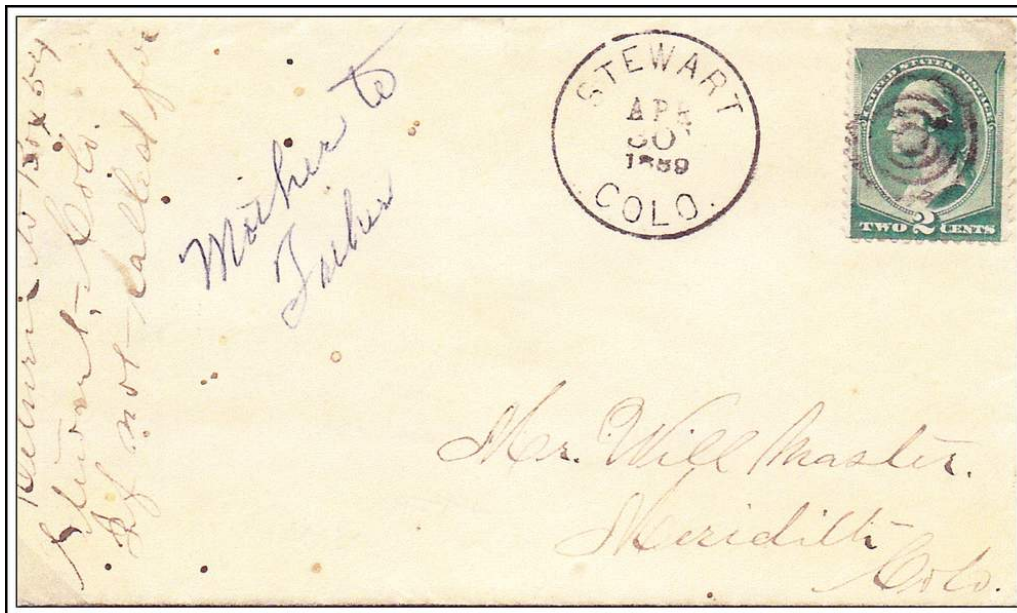 Return to Box 54
Stewart, Colo.
If not called for
Mother to
Father
STEWART
APR
30
1889
COLO.
UNITED STATES POSTAGE
TWO 2 CENTS
Mr. Will Master.
Meridith
Colo.